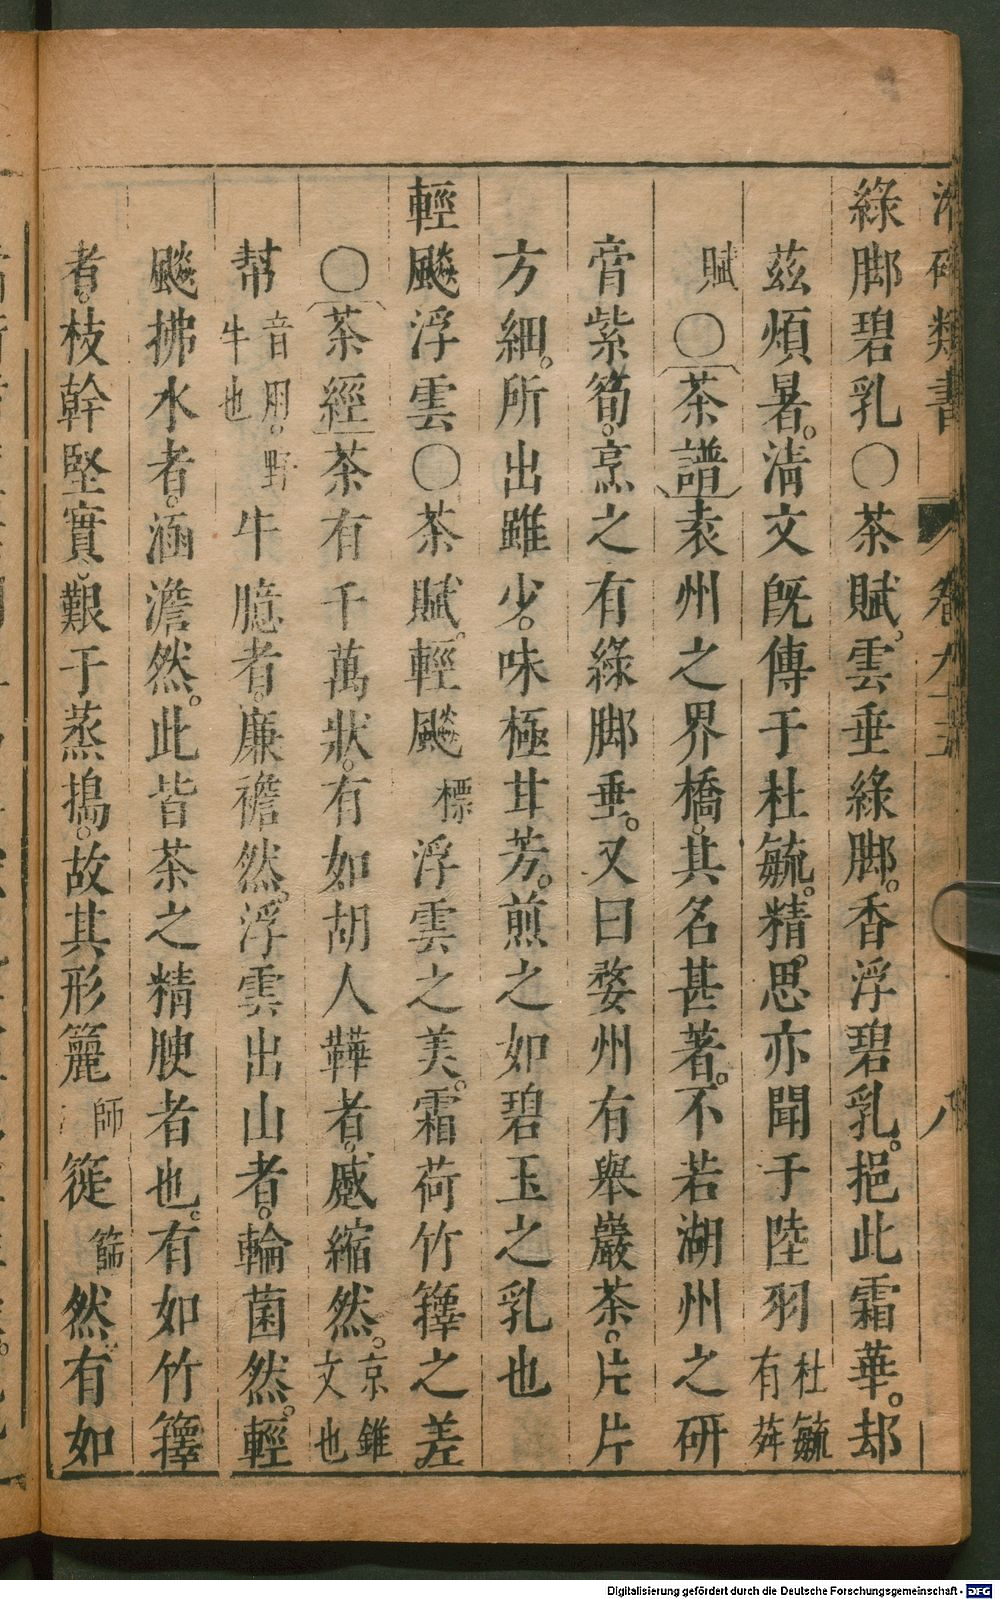 綠脚碧乳〇茶賦。雲垂綠脚。香浮碧乳。挹此霜華。却
茲煩暑。清文旣傳于杜毓。精思亦聞于陸羽杜毓有荈
賦〇茶譜袁州之界橋。其名甚著。不若湖州之研
膏紫筍。烹之有綠脚垂。又曰婺州有舉巖茶。片片
方細。所出雖少。味極甘芳。煎之如碧玉之乳也
輕飈浮雲〇茶賦。輕飈標浮雲之美。霜荷竹籜之差
〇茶經茶有千萬狀。有如胡人鞾者。蹙縮然。京錐文也
犎音用。野牛也牛臆者。廉襜然。浮雲出山者。輪菌然。輕
飈拂水者。涵澹然。此皆茶之精腴者也。有如竹籜
者。枝幹堅實。艱于蒸搗。故其形籭師簁篩然。有如
類書
卷九十五
八
Digitalisierung gefördert durch die Deutsche Forschungsgemeinschaft - DFG